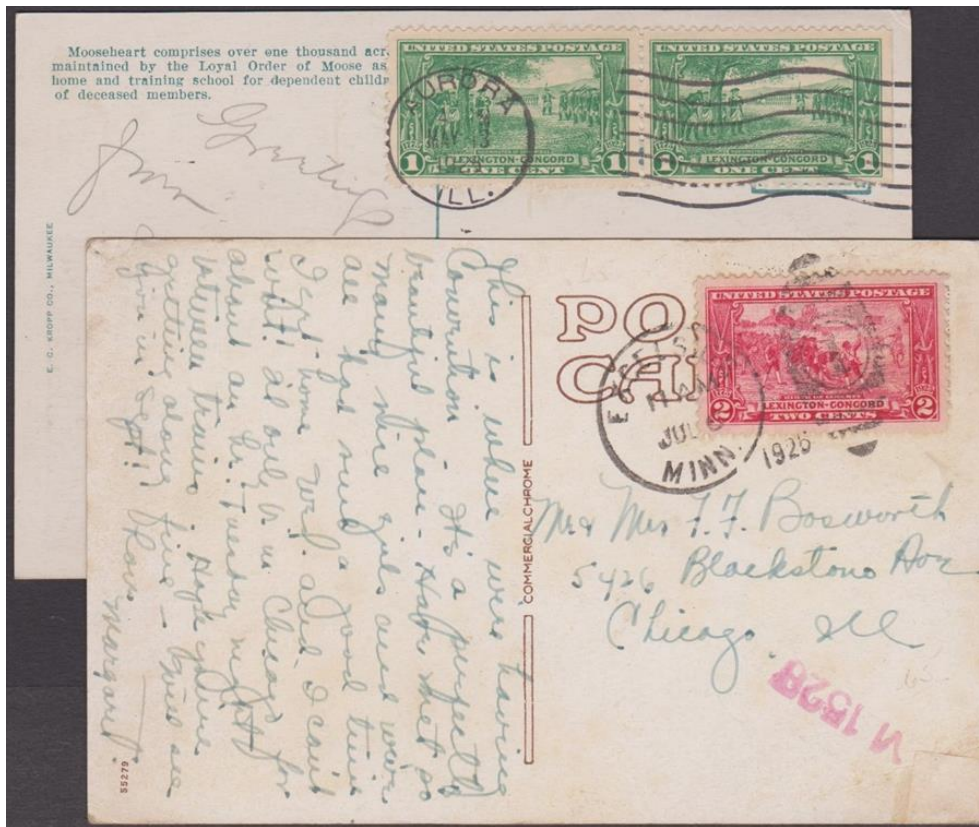 Mooseheart comprises over one thousand acr
maintained by the Loyal Order of Moose as
home and training school for dependent childr
of deceased members.
Greetings
from
E. C. KROPP CO., MILWAUKEE
UNITED STATES POSTAGE
1 LEXINGTON-CONCORD 1
ONE CENT
UNITED STATES POSTAGE
1 LEXINGTON-CONCORD 1
ONE CENT
AURORA
ILL.
This is where we're having
Convention. It's a perfectly
beautiful place - Have met so
many nine girls and were
all had such a good time
I don't home Wed. and I can't
wait! I'll only be in Chicago for
about an hr. Tuesday night
between trains. Hope you're
getting along fine - You'll see
you in Sept!!
Margaret.
55279
COMMERCIALCHROME
PO
CA
UNITED STATES POSTAGE
2 LEXINGTON-CONCORD 2
TWO CENTS
JUL 6
1926
MINN.
Mr & Mrs F. F. Bosworth
5426 Blackstone Ave
Chicago Ill
11528